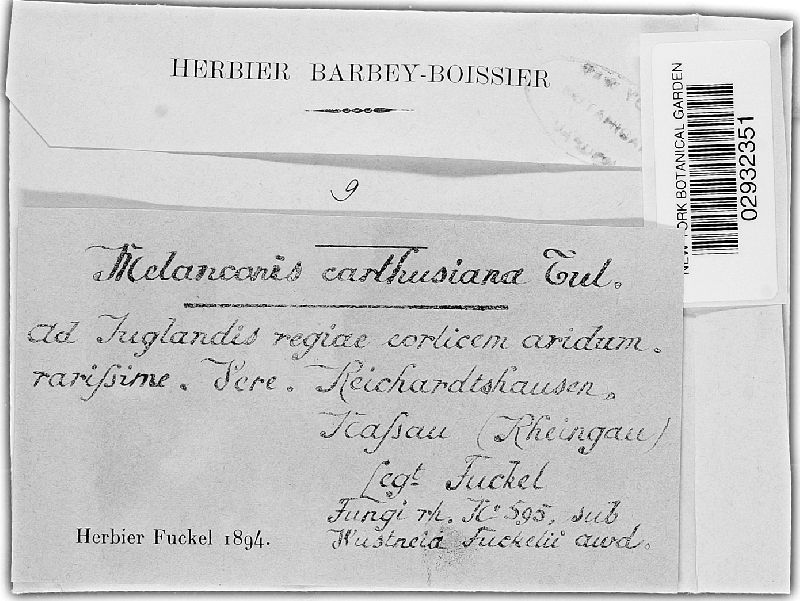 HERBIER BARBEY-BOISSIER
NEW YORK BOTANICAL GARDEN
02932351
9
Melanconis carthusiana Tul.
Ad Juglandis regiae corticem aridum.
rariſsime. Vere. Reichardtshausen.
Naſsau (Rheingau)
Legt. Fuckel
Fungi rh. No 595, sub
Herbier Fuckel 1894.
Fuckelii awd.